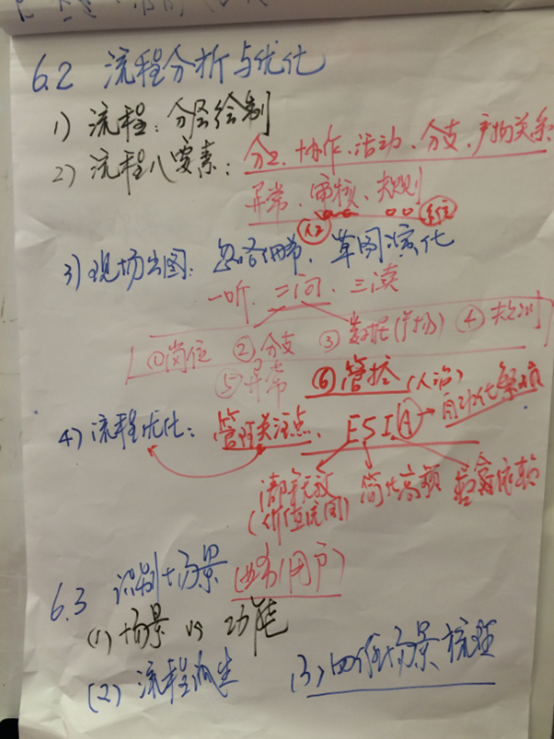 6.2 流程分析与优化
1) 流程：分层绘制
2) 流程八要素：分工、协作、活动、分支、产物关系
异常、审核、大规则
人工
3) 现场出图：忽略细节，草图演化
一听、二问、三读
①岗位 ②分支 ③数据(产物) ④规则
⑤异常 ⑥管控(人治)
4) 流程优化：管理关注点、ESIA→自动化
清除无效 简化高频 整合依赖
(价值)
6.3 识别场景(业务/用户)
(1) 场景 vs 功能
(2) 流程 (3) 四 场景梳理